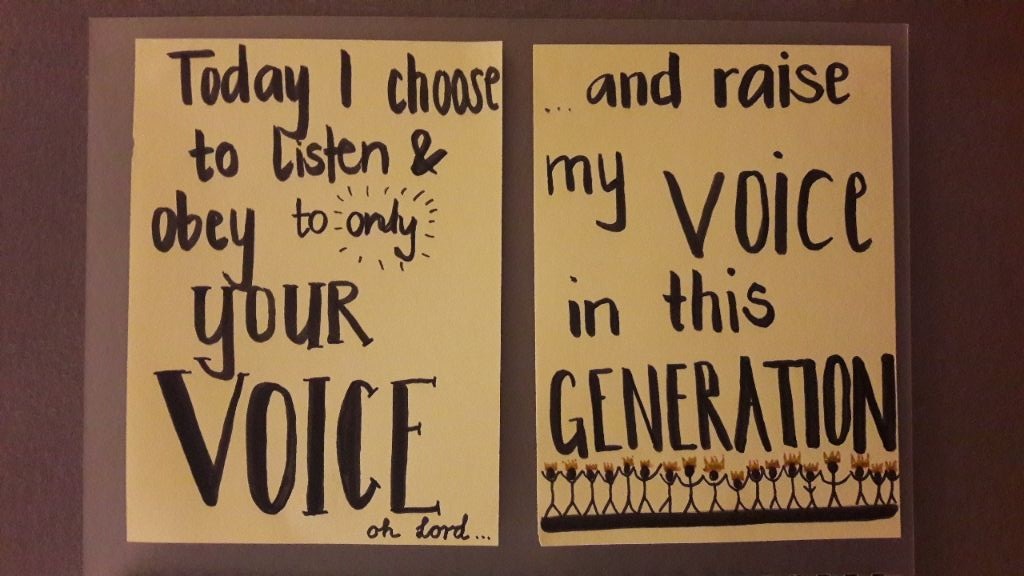 Today I choose
to listen &
obey to only
YOUR
VOICE
oh Lord...
... and raise
my VOICE
in this
GENERATION